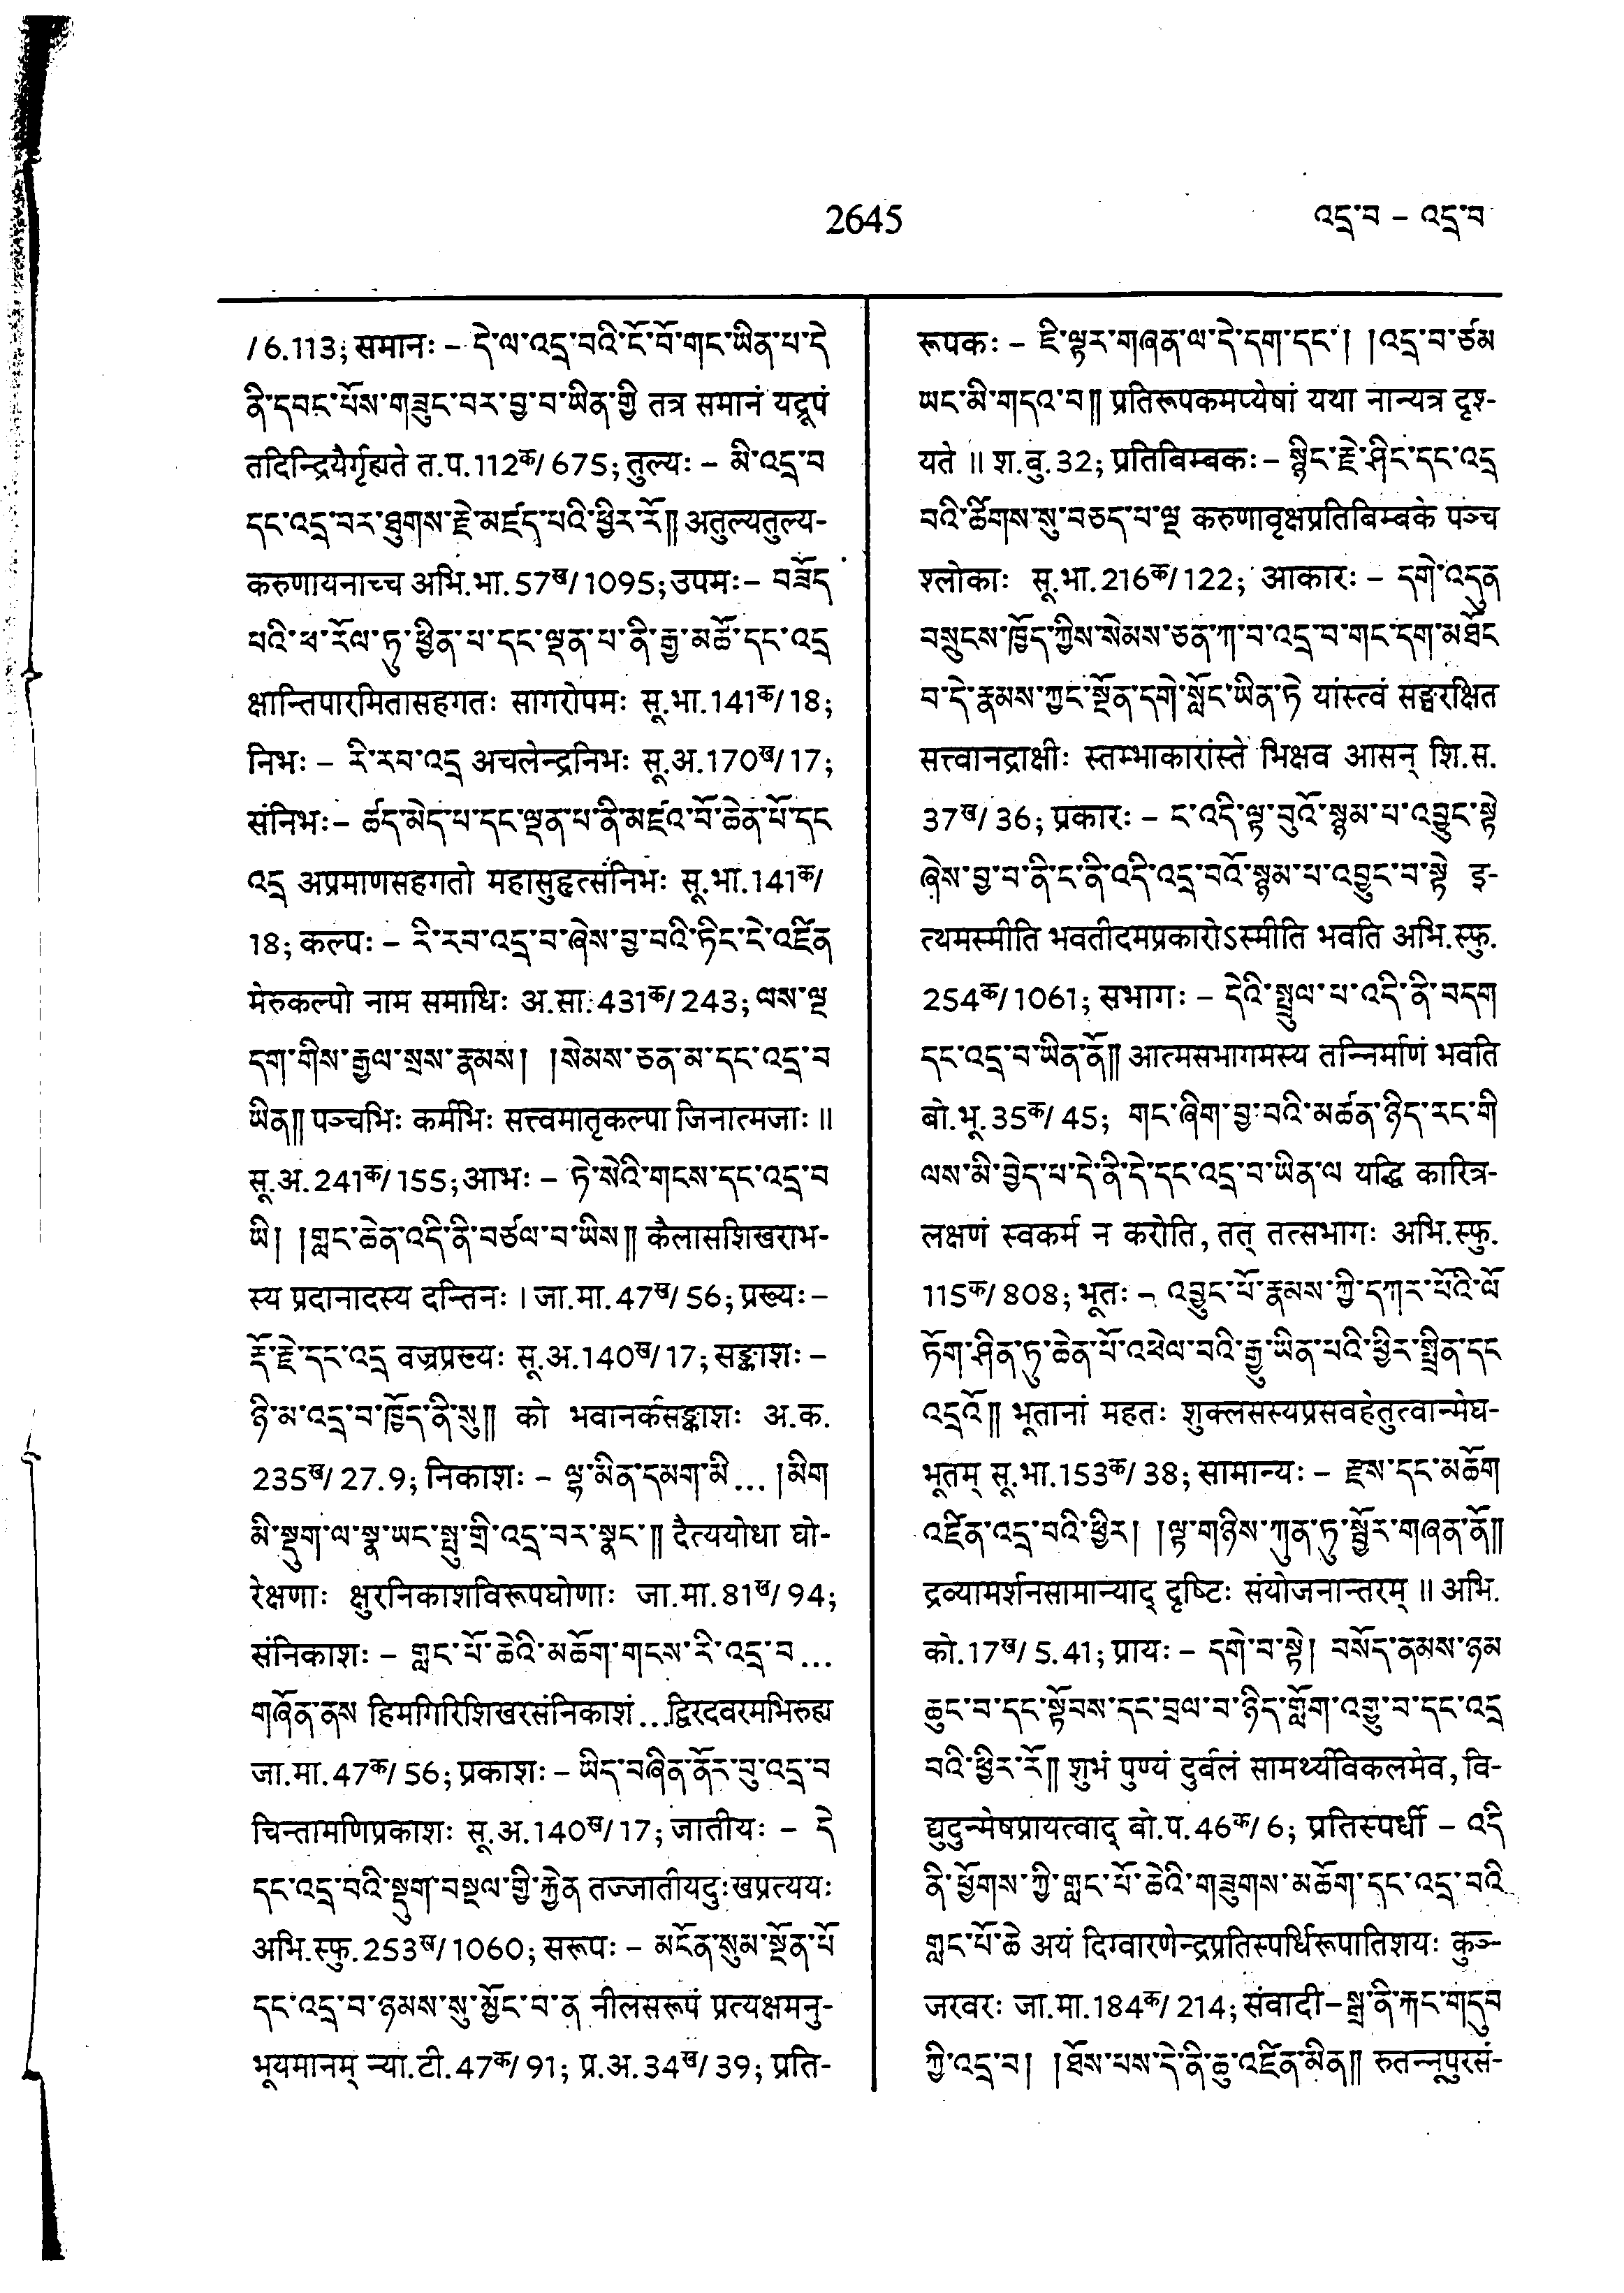 2645
འདྲ་བ – འདྲ་བ
/6.113; समानः – དེ་ལ་འདྲ་བའི་ངོ་བོ་གང་ཡིན་པ་དེ
ནི་དབང་པོས་གཟུང་བར་བྱ་བ་ཡིན་གྱི तत्र समानं यद्रूपं
तदिन्द्रियैर्गृह्यते त.प.112क/675; तुल्यः – མི་འདྲ་བ
དང་འདྲ་བར་ཐུགས་རྗེ་མཛད་པའི་ཕྱིར་རོ༎ अतुल्यतुल्य-
करुणायनाच्च अभि.भा.57ख/1095; उपमः – བཟོད
པའི་ཕ་རོལ་ཏུ་ཕྱིན་པ་དང་ལྡན་པ་ནི་རྒྱ་མཚོ་དང་འདྲ
क्षान्तिपारमितासहगतः सागरोपमः सू.भा.141क/18;
निभः – རི་རབ་འདྲ अचलेन्द्रनिभः सू.अ.170ख/17;
संनिभः – ཚད་མེད་པ་དང་ལྡན་པ་ནི་མཛའ་བོ་ཆེན་པོ་དང
འདྲ अप्रमाणसहगतो महासुहृत्संनिभः सू.भा.141क/
18; कल्पः – རི་རབ་འདྲ་བ་ཞེས་བྱ་བའི་ཏིང་ངེ་འཛིན
मेरुकल्पो नाम समाधिः अ.सा.431क/243; ལས་ལྔ
དག་གིས་རྒྱལ་སྲས་རྣམས། །སེམས་ཅན་མ་དང་འདྲ་བ
ཡིན༎ पञ्चभिः कर्मभिः सत्त्वमातृकल्पा जिनात्मजाः ॥
सू.अ.241क/155; आभः – ཏེ་སེའི་གངས་དང་འདྲ་བ
ཡི། །གླང་ཆེན་འདི་ནི་བཙལ་བ་ཡིས༎ कैलासशिखराभ-
स्य प्रदानादस्य दन्तिनः । जा.मा.47ख/56; प्रख्यः –
རྡོ་རྗེ་དང་འདྲ वज्रप्रख्यः सू.अ.140ख/17; सङ्काशः –
ཉི་མ་འདྲ་བ་ཁྱོད་ནི་སུ༎ को भवानर्कसङ्काशः अ.क.
235ख/27.9; निकाशः – ལྷ་མིན་དམག་མི... །མིག
མི་སྡུག་ལ་སྣ་ཡང་སྤུ་གྲི་འདྲ་བར་སྣང་༎ दैत्ययोधा घो-
रेक्षणाः क्षुरनिकाशविरूपघोणाः जा.मा.81ख/94;
संनिकाशः – གླང་པོ་ཆེའི་མཆོག་གངས་རི་འདྲ་བ...
གཞོན་ནས हिमगिरिशिखरसंनिकाशं...द्विरदवरमभिरुह्य
जा.मा.47क/56; प्रकाशः – ཡིད་བཞིན་ནོར་བུ་འདྲ་བ
चिन्तामणिप्रकाशः सू.अ.140ख/17; जातीयः – དེ
དང་འདྲ་བའི་སྡུག་བསྔལ་གྱི་རྐྱེན तज्जातीयदुःखप्रत्ययः
अभि.स्फु.253ख/1060; सरूपः – མངོན་སུམ་སྔོན་པོ
དང་འདྲ་བ་ཉམས་སུ་མྱོང་བ་ན नीलसरूपं प्रत्यक्षमनु-
भूयमानम् न्या.टी.47क/91; प्र.अ.34ख/39; प्रति-
रूपकः – ཇི་ལྟར་གཞན་ལ་དེ་དག་དང་། །འདྲ་བ་ཙམ
ཡང་མི་གདའ་བ༎ प्रतिरूपकमप्येषां यथा नान्यत्र दृश-
यते ॥ श.बु.32; प्रतिबिम्बकः – སྙིང་རྗེ་ཤིང་དང་འདྲ
བའི་ཚིགས་སུ་བཅད་པ་ལྔ करुणावृक्षप्रतिबिम्बके पञ्च
श्लोकाः सू.भा.216क/122; आकारः – དགེ་འདུན
བསྲུངས་ཁྱོད་ཀྱིས་སེམས་ཅན་ཀ་བ་འདྲ་བ་གང་དག་མཐོང
བ་དེ་རྣམས་ཀྱང་སྔོན་དགེ་སློང་ཡིན་ཏེ यांस्त्वं सङ्घरक्षित
सत्त्वानद्राक्षीः स्तम्भाकारांस्ते भिक्षव आसन् शि.स.
37ख/36; प्रकारः – ང་འདི་ལྟ་བུའོ་སྙམ་པ་འབྱུང་སྟེ
ཞེས་བྱ་བ་ནི་ང་ནི་འདི་འདྲ་བའོ་སྙམ་པ་འབྱུང་བ་སྟེ इ-
त्थमस्मीति भवतीदमप्रकारोऽस्मीति भवति अभि.स्फु.
254क/1061; सभागः – དེའི་སྤྲུལ་པ་འདི་ནི་བདག
དང་འདྲ་བ་ཡིན་ནོ༎ आत्मसभागमस्य तन्निर्माणं भवति
बो.भू.35क/45; གང་ཞིག་བྱ་བའི་མཚན་ཉིད་རང་གི
ལས་མི་བྱེད་པ་དེ་ནི་དེ་དང་འདྲ་བ་ཡིན་ལ यद्धि कारित्र-
लक्षणं स्वकर्म न करोति, तत् तत्सभागः अभि.स्फु.
115क/808; भूतः – འབྱུང་པོ་རྣམས་ཀྱི་དཀར་པོའི་ལོ
ཏོག་ཤིན་ཏུ་ཆེན་པོ་འཕེལ་བའི་རྒྱུ་ཡིན་པའི་ཕྱིར་སྤྲིན་དང
འདྲའོ༎ भूतानां महतः शुक्लसस्यप्रसवहेतुत्वान्मेघ-
भूतम् सू.भा.153क/38; सामान्यः – རྫས་དང་མཆོག
འཛིན་འདྲ་བའི་ཕྱིར། །ལྟ་གཉིས་ཀུན་ཏུ་སྦྱོར་གཞན་ནོ༎
द्रव्यामर्शनसामान्याद् दृष्टिः संयोजनान्तरम् ॥ अभि.
को.17ख/5.41; प्रायः – དགེ་བ་སྟེ། བསོད་ནམས་ཉམ
ཆུང་བ་དང་སྟོབས་དང་བྲལ་བ་ཉིད་གློག་འགྱུ་བ་དང་འདྲ
བའི་ཕྱིར་རོ༎ शुभं पुण्यं दुर्बलं सामर्थ्यविकलमेव, वि-
द्युदुन्मेषप्रायत्वाद् बो.प.46क/6; प्रतिस्पर्धी – འདི
ནི་ཕྱོགས་ཀྱི་གླང་པོ་ཆེའི་གཟུགས་མཆོག་དང་འདྲ་བའི
གླང་པོ་ཆེ अयं दिग्वारणेन्द्रप्रतिस्पर्धिरूपातिशयः कुञ्-
जरवरः जा.मा.184क/214; संवादी – སྒྲ་ནི་རྐང་གདུབ
ཀྱི་འདྲ་བ། །ཐོས་པས་དེ་ནི་ཆུ་འཛིན་མིན༎ रुतन्नूपुरसं-